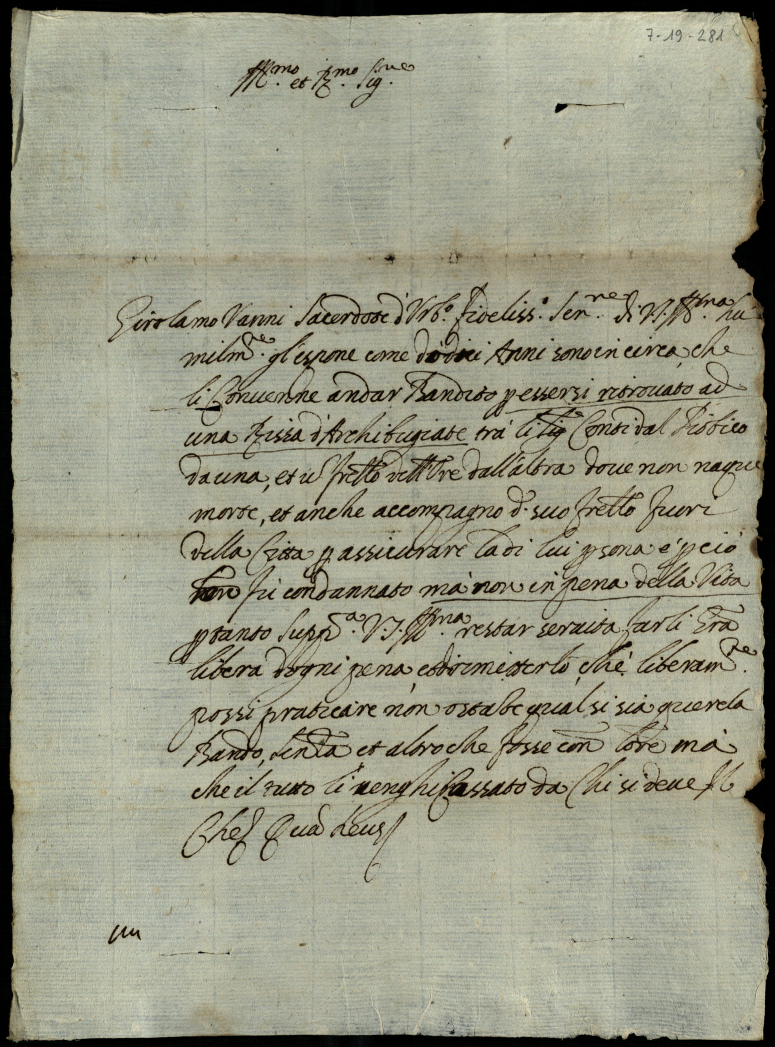 7-19-281
Ill.mo et R.mo Sig.re
Girolamo Vanni Sacerdote d'Urb.o fideliss.o Ser.re di V.S. Ill.ma hu
milm.te gl'espone come dodici Anni sono in circa, che
li Convenne andar Bandito p essersi ritrovato ad
una Rissa d'Archibugiate trà li Sig. Conti dal Piobico
da una, et il frello dell' dall'altra dove non naque
morte, et anche accompagnò d. suo frello fuori
della Citta p assicurare la di lui psona é p ciò
fu condannato mà non in pena della Vita
ptanto Supp.a V.S. Ill.ma restar servita farli Gra
libera d'ogni pena et dimetterlo, ché liberam.te
possi praticare non ostate qual si sia querela
Bando, Senza et altro che fosse con mà
che il tutto li venghi Cassato da Chi si deve Il
Che Qua Deus